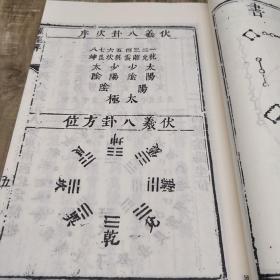 書
伏羲八卦次序
一乾
二兌
三離
四震
五巽
六坎
七艮
八坤
太陽
少陰
少陽
太陰
陽
陰
太極
伏羲八卦方位
坤
坎
兌
乾
五